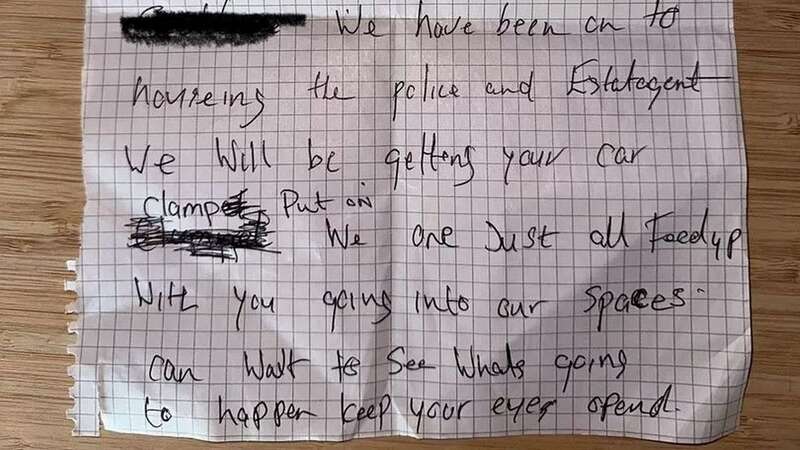 We have been on to
houseing the police and Estatagent
We Will be getting your car
clamped Put on
We are Just all Feedup
With you going into our Spaces.
can Wait to See Whats going
to happen keep your eyes opend.